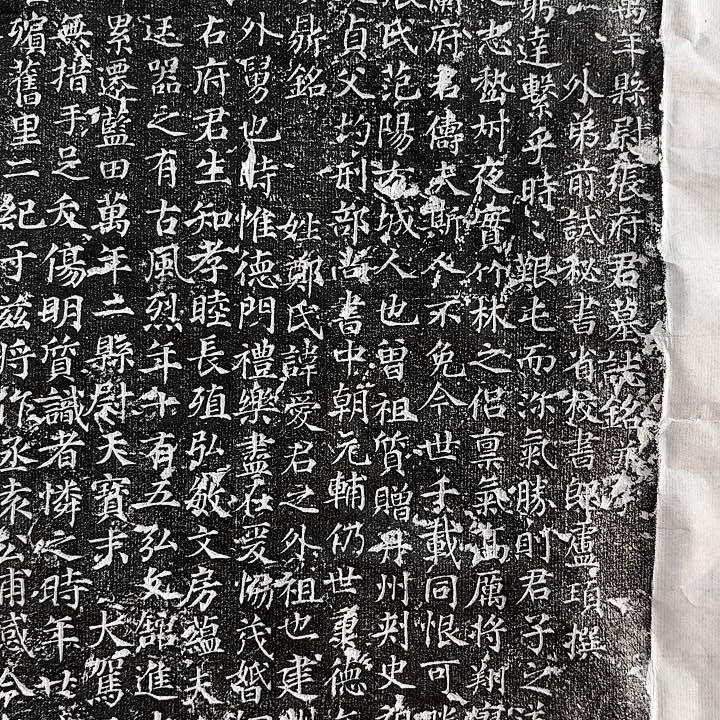 萬年縣尉張府君墓誌銘并序
外弟前試秘書省校書郎盧頊撰
窮達繫乎時時艱屯而沴氣勝則君子之
之志蟄州夜實竹林之侶禀氣高厲將翔
蘭府君儔夫斯人不免今世千載同恨可
張氏范陽方城人也曾祖質贈丹州刾史祖
貞父均刑部尚書中朝元輔仍世秉德
鼎銘 姓鄭氏諱愛君之外祖也建
外舅也時惟德門禮樂盡在爰恊茂婚
右府君生知孝睦長殖弘敏文房蘊夫
廷器之有古風烈年十有五弘文舘進
累遷藍田萬年二縣尉天寶末 大駕
無措手足夜傷明質識者憐之時年廿
殯舊里二紀于兹將作丞袁公甫咸今